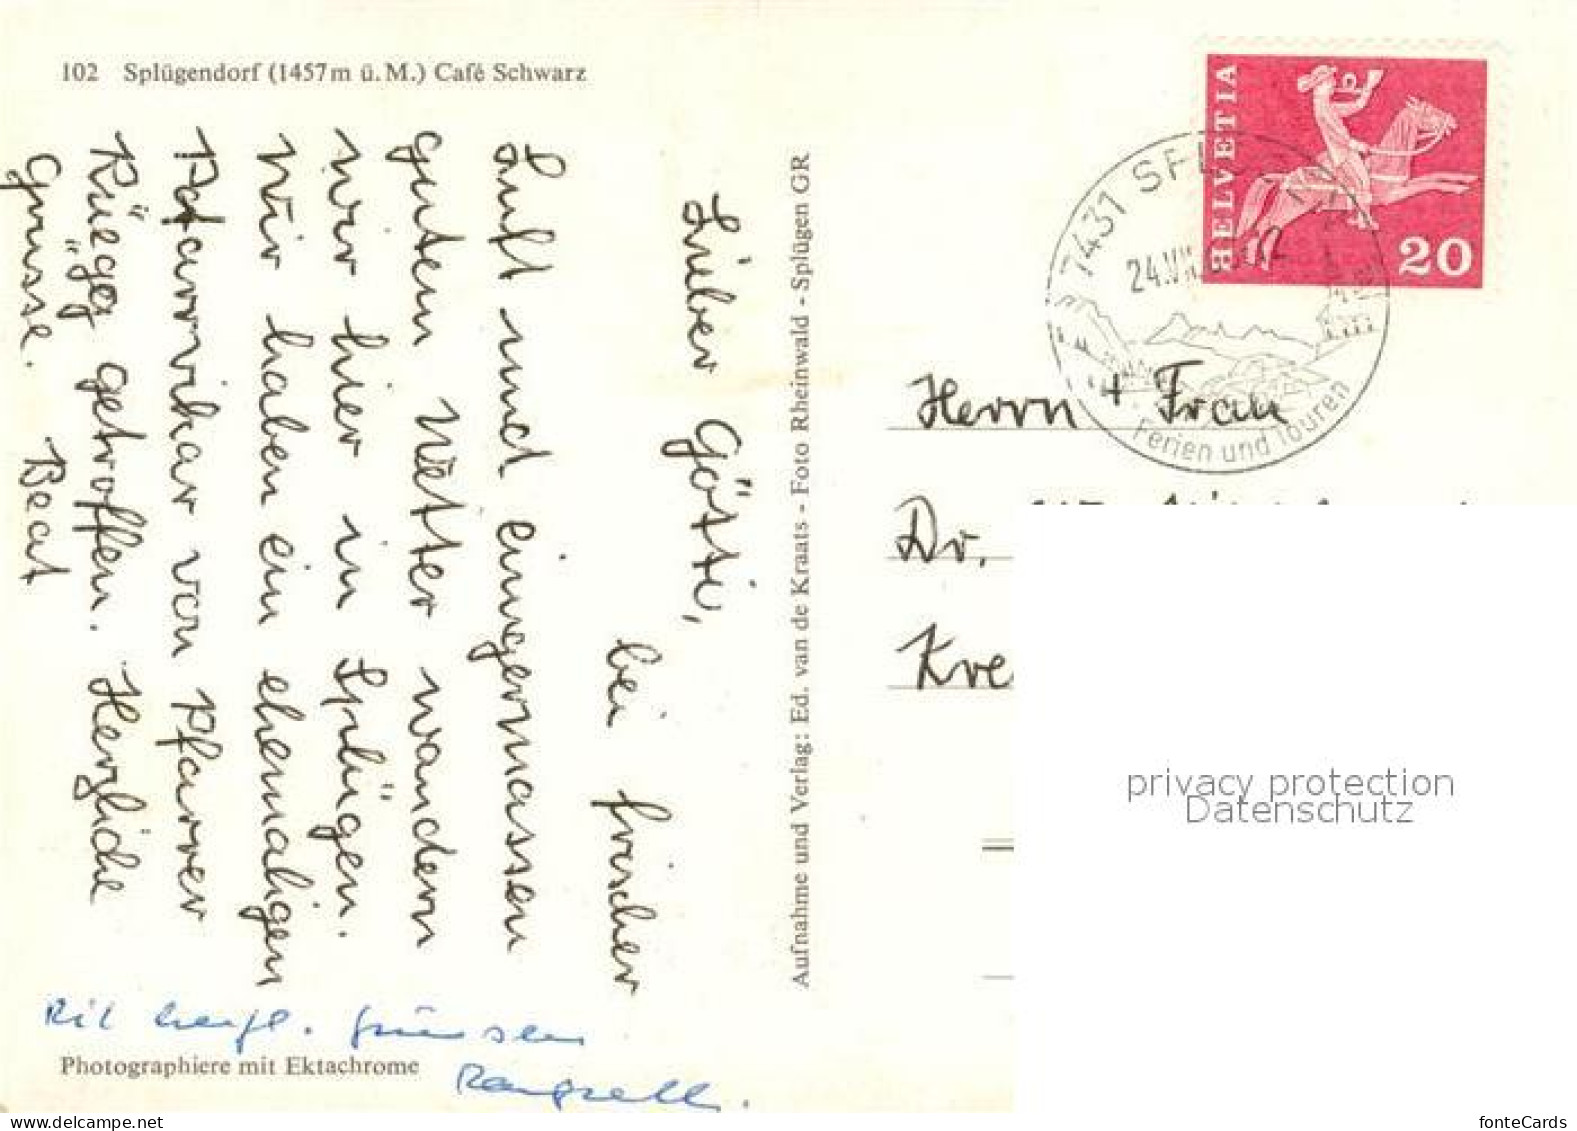 102 Splügendorf (1457 m ü. M.) Café Schwarz
Lieber Götti,
bei frischer
Luft und einigermassen
gutem Wetter wandern
wir hier in Splügen.
Wir haben ein ehemaligen
Pfarrvikar von Pfarrer
Rüegg getroffen. Herzliche
Grüsse. Beat
herzl. Grüssen
Photographiere mit Ektachrome
Aufnahme und Verlag: Ed. van de Kraats - Foto Rheinwald - Splügen GR
HELVETIA
20
7431
24.VII
Ferien und Touren
Herrn + Frau
Dr.
Kre
privacy protection
Datenschutz
fonteCards
www.delcampe.net